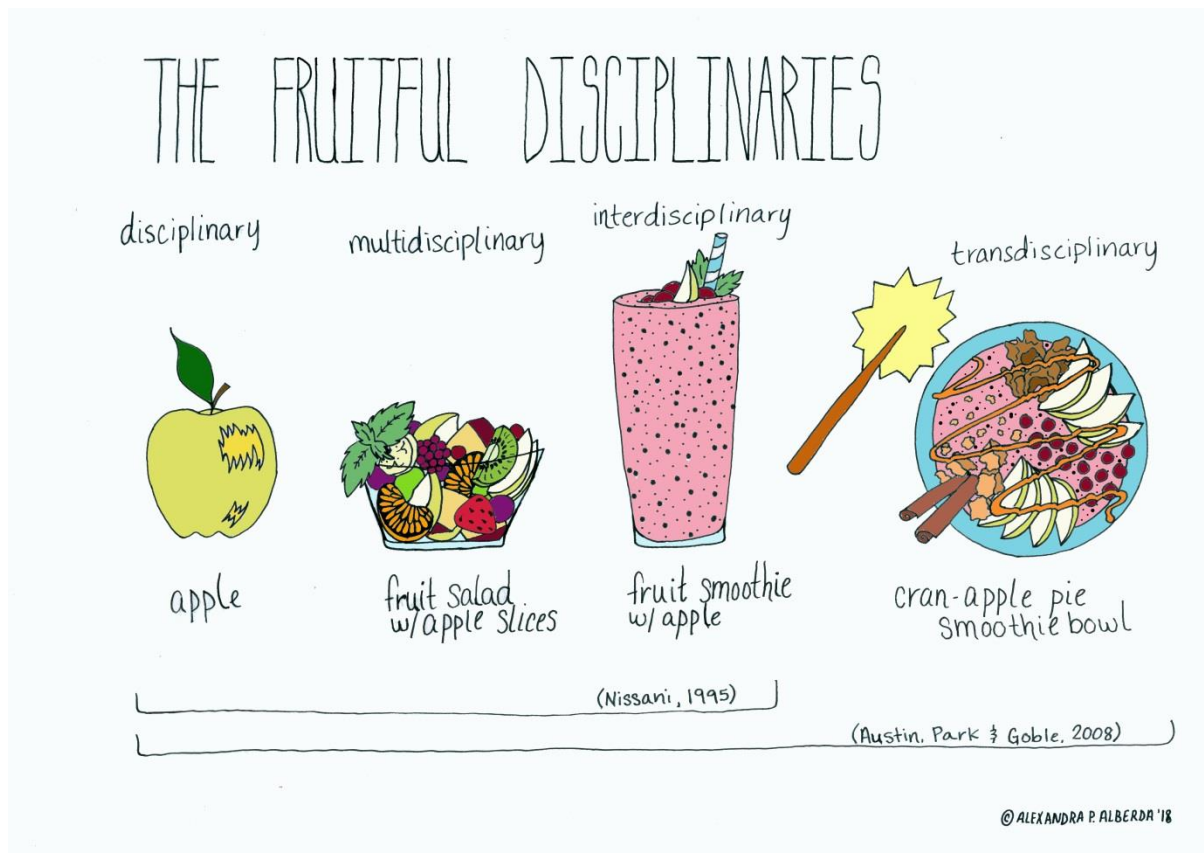 THE FRUITFUL DISCIPLINARIES
disciplinary
multidisciplinary
interdisciplinary
transdisciplinary
apple
fruit salad
w/apple slices
fruit smoothie
w/ apple
cran-apple pie
smoothie bowl
(Nissani, 1995)
(Austin, Park & Goble, 2008)
© ALEXANDRA P. ALBERDA '18